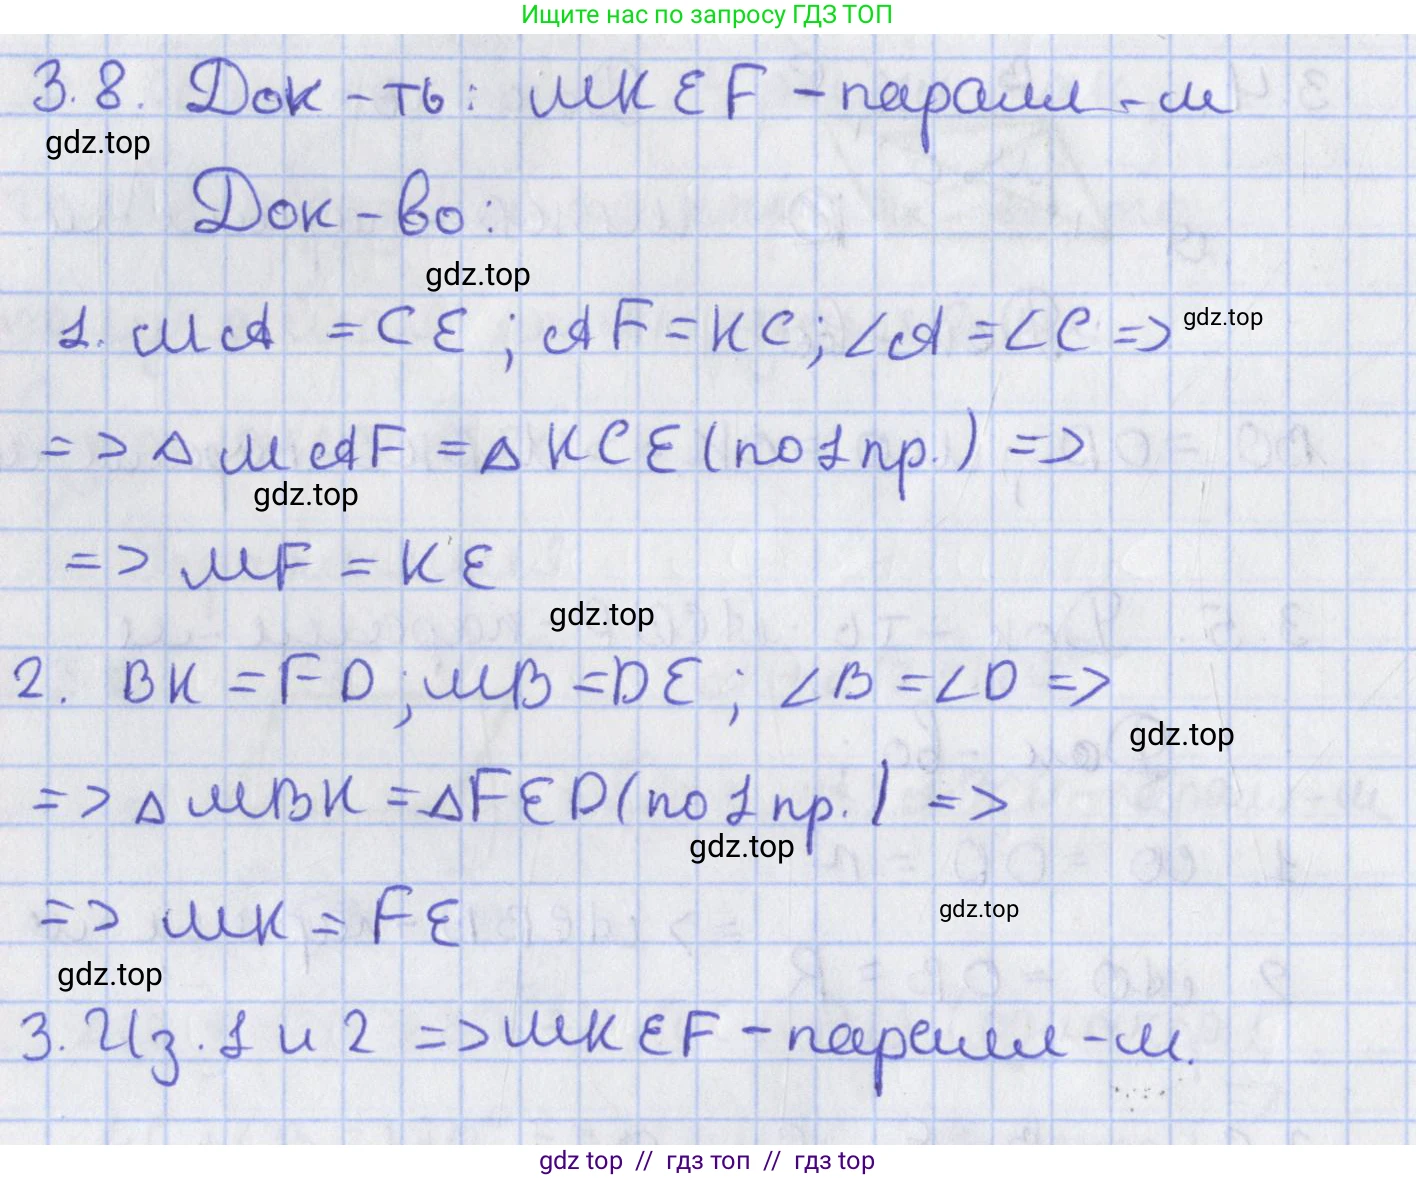 Ищите нас по запросу ГДЗ ТОП
3.8. Док-ть: MKEF - паралл-м
gdz.top
Док-во:
gdz.top
1. MA = CE; AF = KC; ∠A = ∠C =>
gdz.top
=> △MAF = △KCE (по 1 пр.) =>
gdz.top
=> MF = KE
gdz.top
2. BK = FD; MB = DE; ∠B = ∠D =>
gdz.top
=> △MBK = △FED (по 1 пр.) =>
gdz.top
=> MK = FE
gdz.top
gdz.top
3. Из. 1 и 2 => MKEF - паралл-м.
gdz top // гдз топ // гдз top